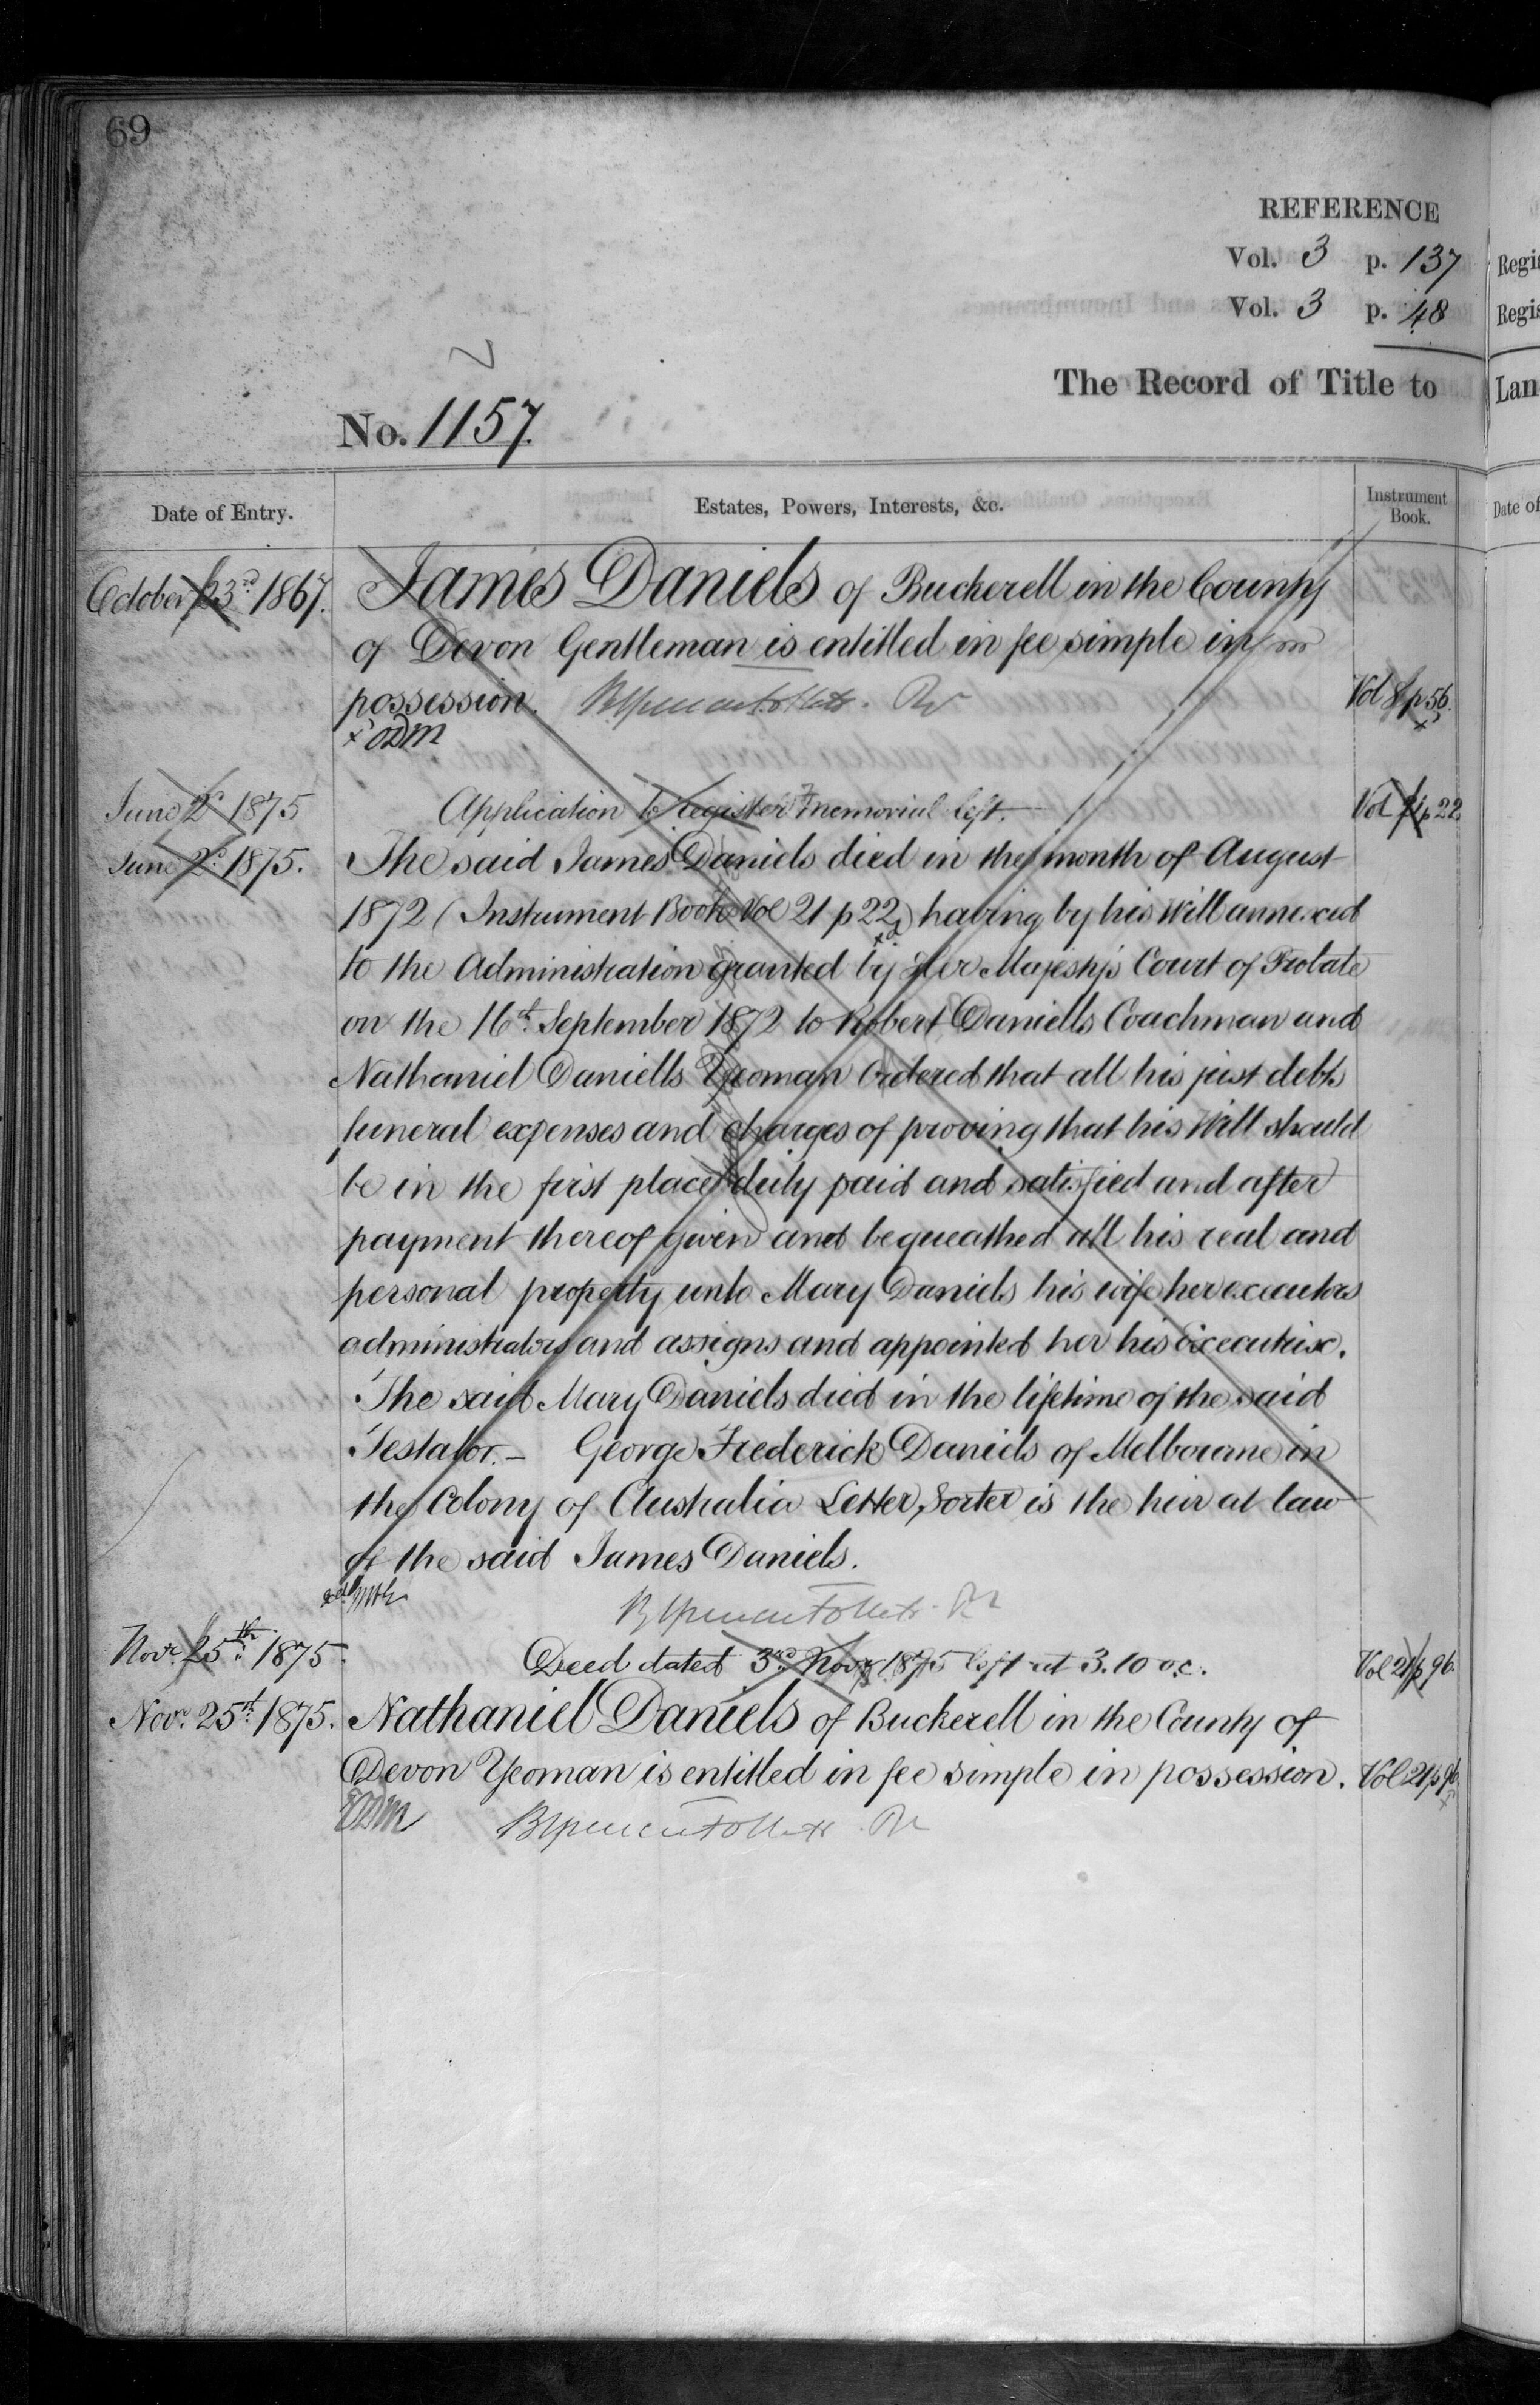 69
REFERENCE
Vol. 3 p. 137
Vol. 3 p. 48
The Record of Title to
No. 1157.
Date of Entry.
Estates, Powers, Interests, &c.
Instrument Book.
October 23rd 1867.
James Daniels of Buckerell in the County
of Devon Gentleman is entitled in fee simple in
possession.
Vol 8 p 56.
June 2d 1875
Application to register & memorial left.
Vol 21 p 22
June 2d 1875.
The said James Daniels died in the month of August
1872 (Instrument Book Vol 21 p 22) having by his Will annexed
to the Administration granted by Her Majesty's Court of Probate
on the 16th September 1872 to Robert Daniells Coachman and
Nathaniel Daniells Yeoman Ordered that all his just debts
funeral expenses and charges of proving that his Will should
be in the first place duly paid and satisfied and after
payment thereof given and bequeathed all his real and
personal property unto Mary Daniels his wife her executors
administrators and assigns and appointed her his executrix.
The said Mary Daniels died in the lifetime of the said
Testator. – George Frederick Daniels of Melbourne in
the Colony of Australia Letter Sorter is the heir at law
of the said James Daniels.
Novr. 25th 1875.
Deed dated 3rd Novr 1875 left at 3.10 o.c.
Vol 21 p 96.
Novr. 25th 1875.
Nathaniel Daniels of Buckerell in the County of
Devon Yeoman is entitled in fee simple in possession.
Vol 21 p 96
Regi
Regis
Lan
Date of